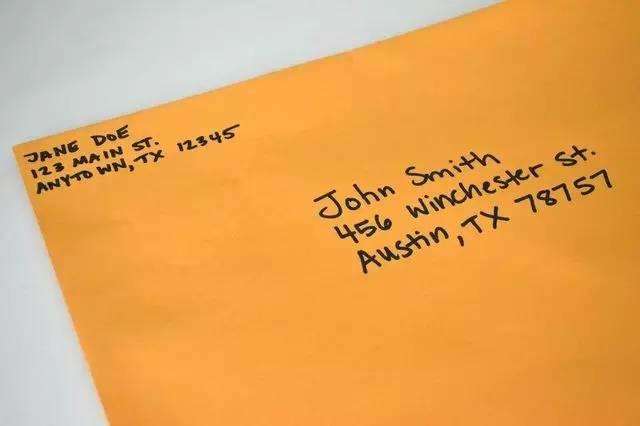 JANE DOE
123 MAIN ST.
ANYTOWN, TX 12345
John Smith
456 Winchester St.
Austin, TX 78757